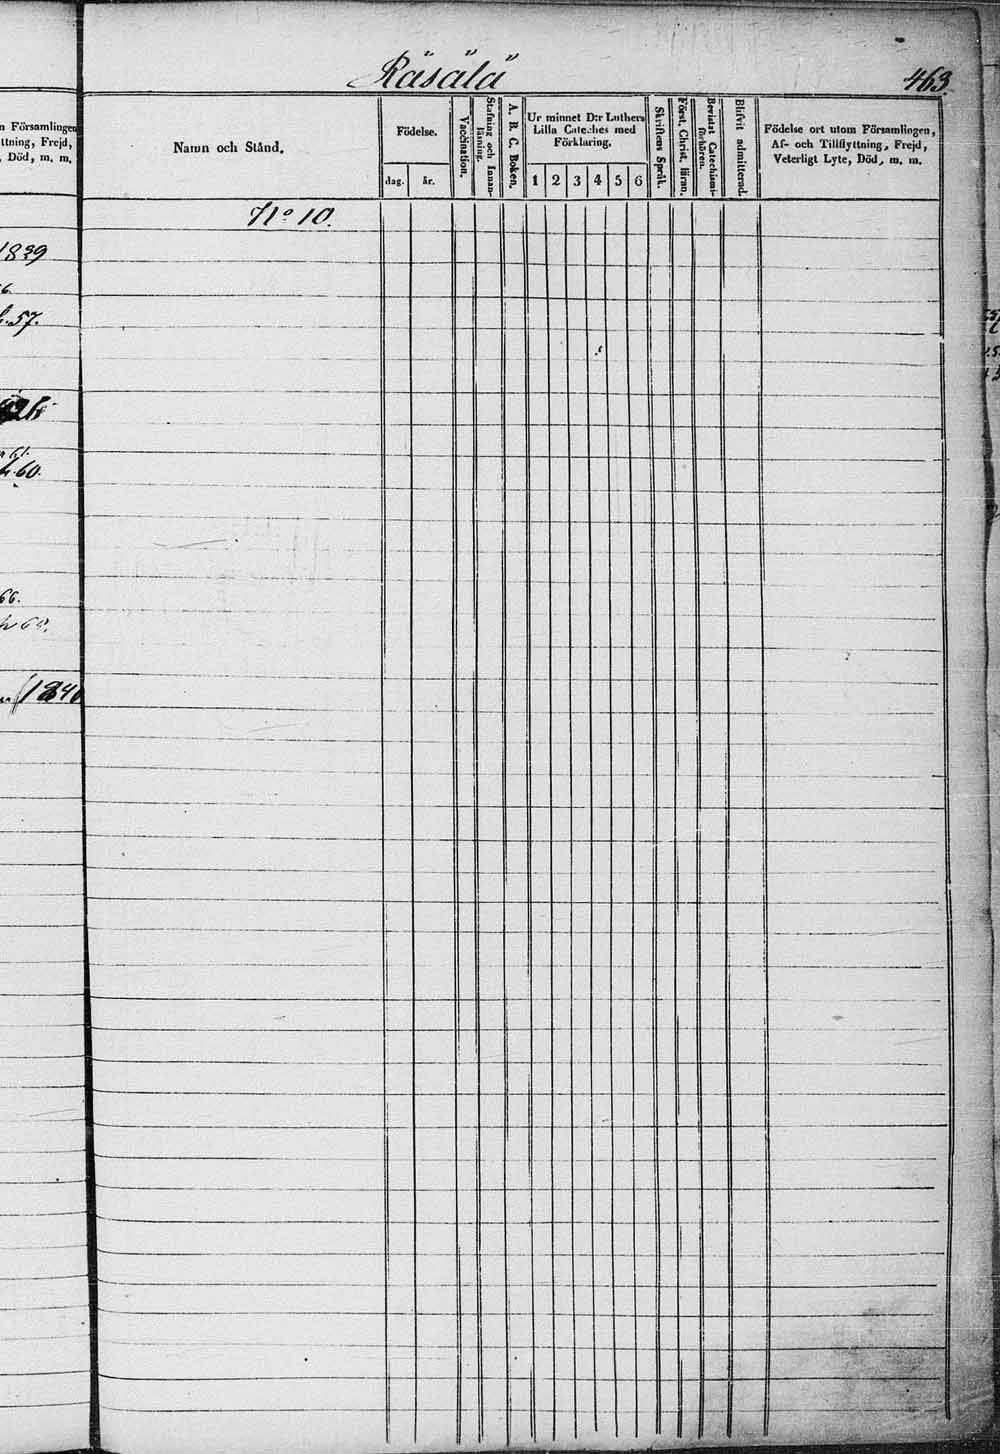 Räsälä
463.
n Församlingen
ttning, Frejd,
, Död, m. m.
Namn och Stånd.
Födelse.
dag.
år.
Vaccination.
Stafning och Innan-
läsning.
A. B. C. Boken.
Ur minnet D:r Luthers
Lilla Cateches med
Förklaring.
1 2 3 4 5 6
Skriftens Språk.
Först. Christ. läran.
Bevistat Catechismi-
förhören.
Blifvit admitterad.
Födelse ort utom Församlingen,
Af- och Tillflyttning, Frejd,
Veterligt Lyte, Död, m. m.
No 10.
1839
6.
57.
61.
60.
66.
68.
1840